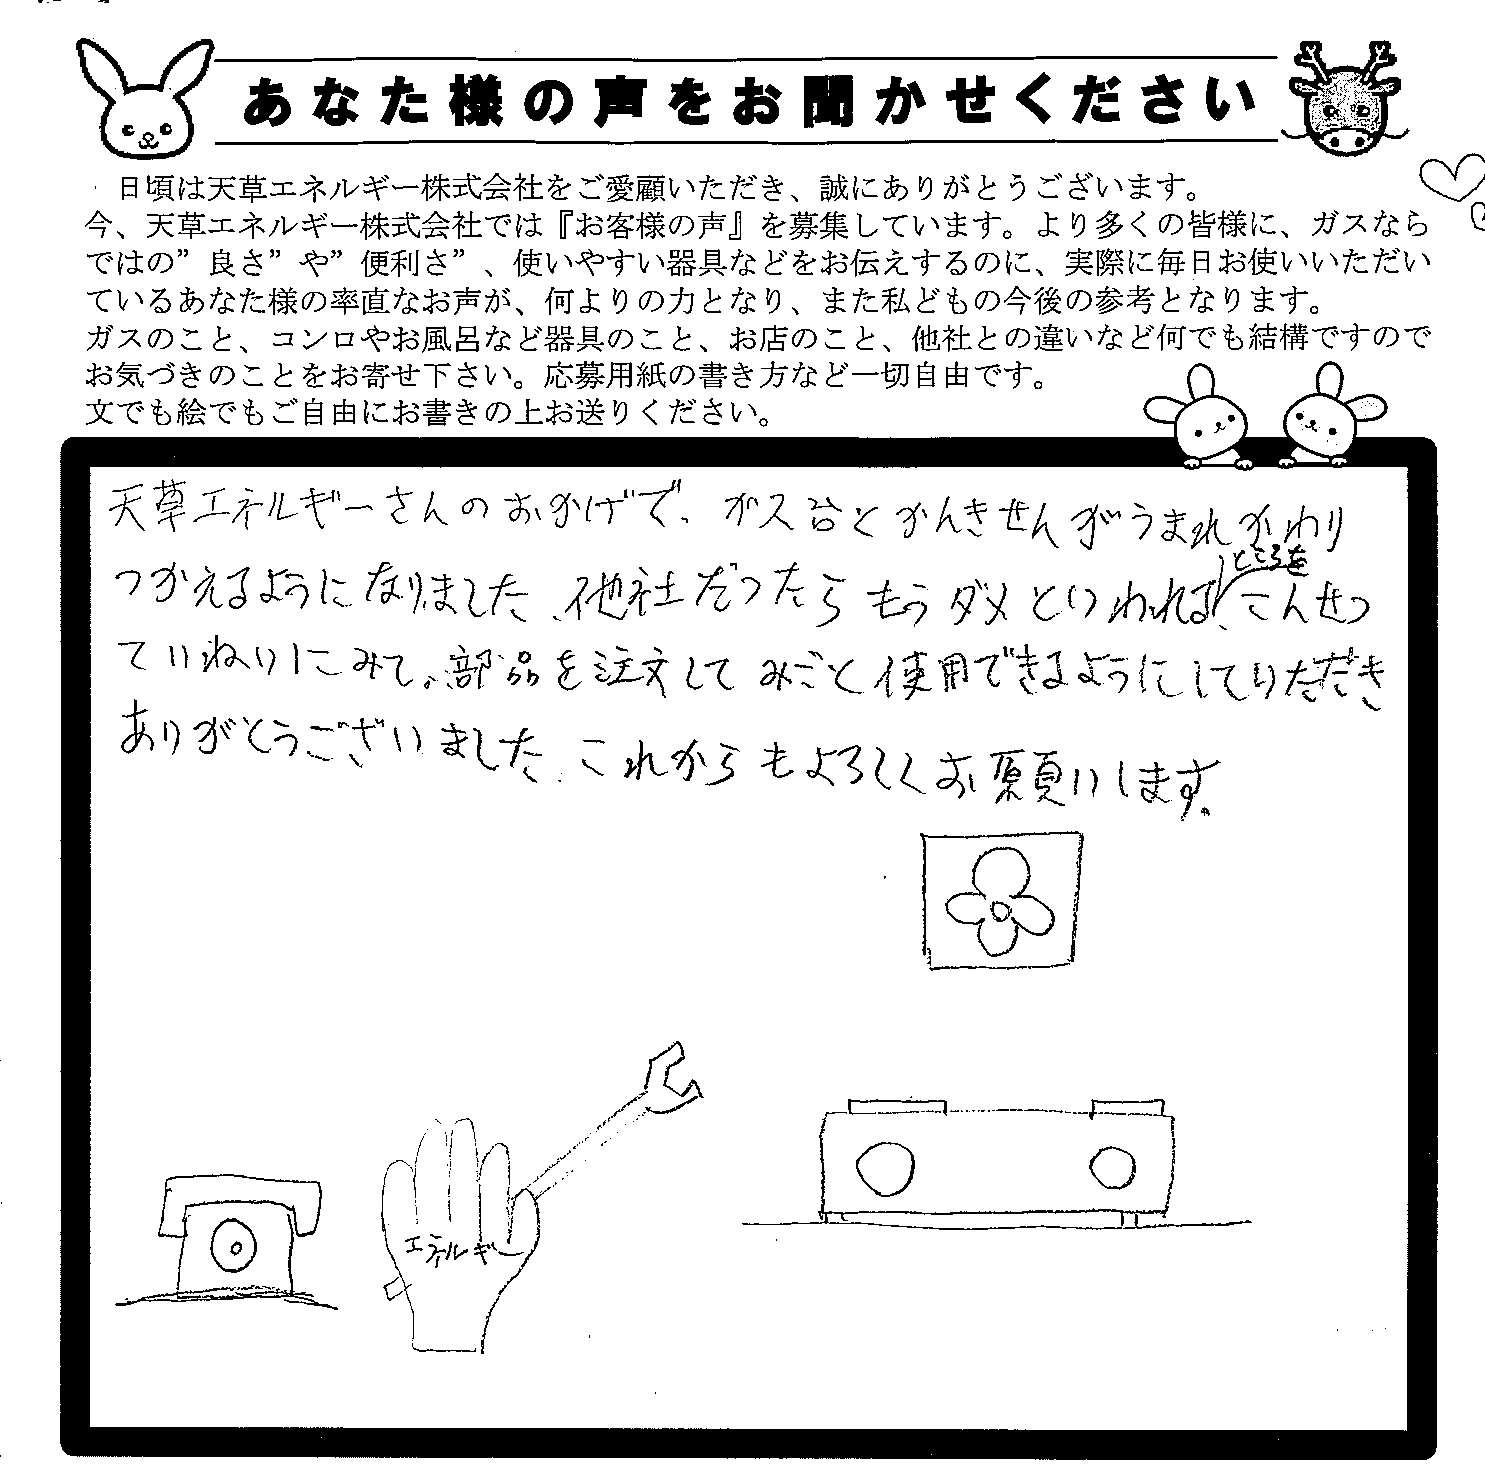 あなた様の声をお聞かせください
日頃は天草エネルギー株式会社をご愛顧いただき、誠にありがとうございます。
今、天草エネルギー株式会社では『お客様の声』を募集しています。より多くの皆様に、ガスなら
ではの”良さ”や”便利さ”、使いやすい器具などをお伝えするのに、実際に毎日お使いいただい
ているあなた様の率直なお声が、何よりの力となり、また私どもの今後の参考となります。
ガスのこと、コンロやお風呂など器具のこと、お店のこと、他社との違いなど何でも結構ですので
お気づきのことをお寄せ下さい。応募用紙の書き方など一切自由です。
文でも絵でもご自由にお書きの上お送りください。
天草エネルギーさんのおかげで、ガス台とかんきせんがうまれかわり
つかえるようになりました、他社だったらもうダメといわれるところを、こんせつ
ていねいにみて、部品を注文してみごと使用できるようにしていただき
ありがとうございました、これからもよろしくお願いします。
エネルギー